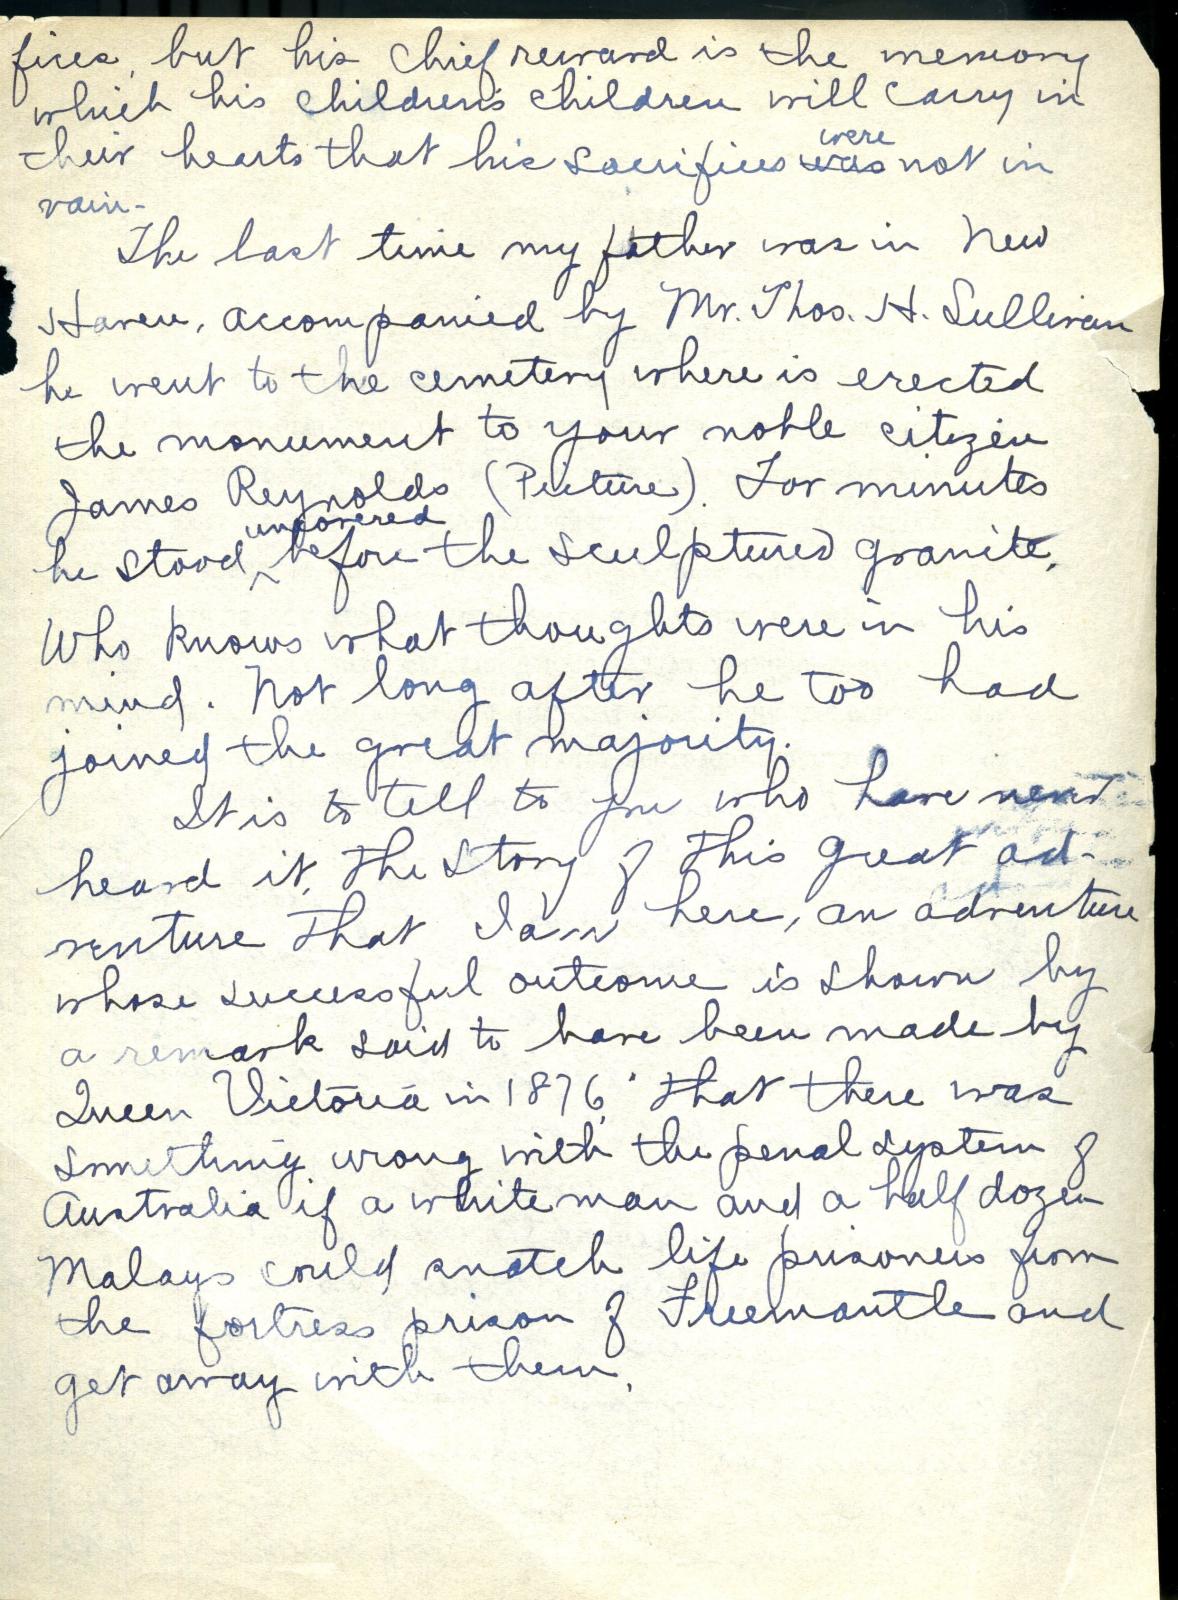 fices, but his chief reward is the memory
which his children's children will carry in
their hearts that his sacrifices was were not in
vain.
The last time my father was in New
Haven, accompanied by Mr. Thos. H. Sullivan
he went to the cemetery where is erected
the monument to your noble citizen
James Reynolds (Picture). For minutes
he stood uncovered before the sculptured granite.
Who knows what thoughts were in his
mind. Not long after he too had
joined the great majority.
It is to tell to you who have never
heard it, the story of this great ad-
venture that I am here, an adventure
whose successful outcome is shown by
a remark said to have been made by
Queen Victoria in 1876, "that there was
something wrong with the penal system of
Australia if a white man and a half dozen
Malays could snatch life prisoners from
the fortress prison of Freemantle and
get away with them.